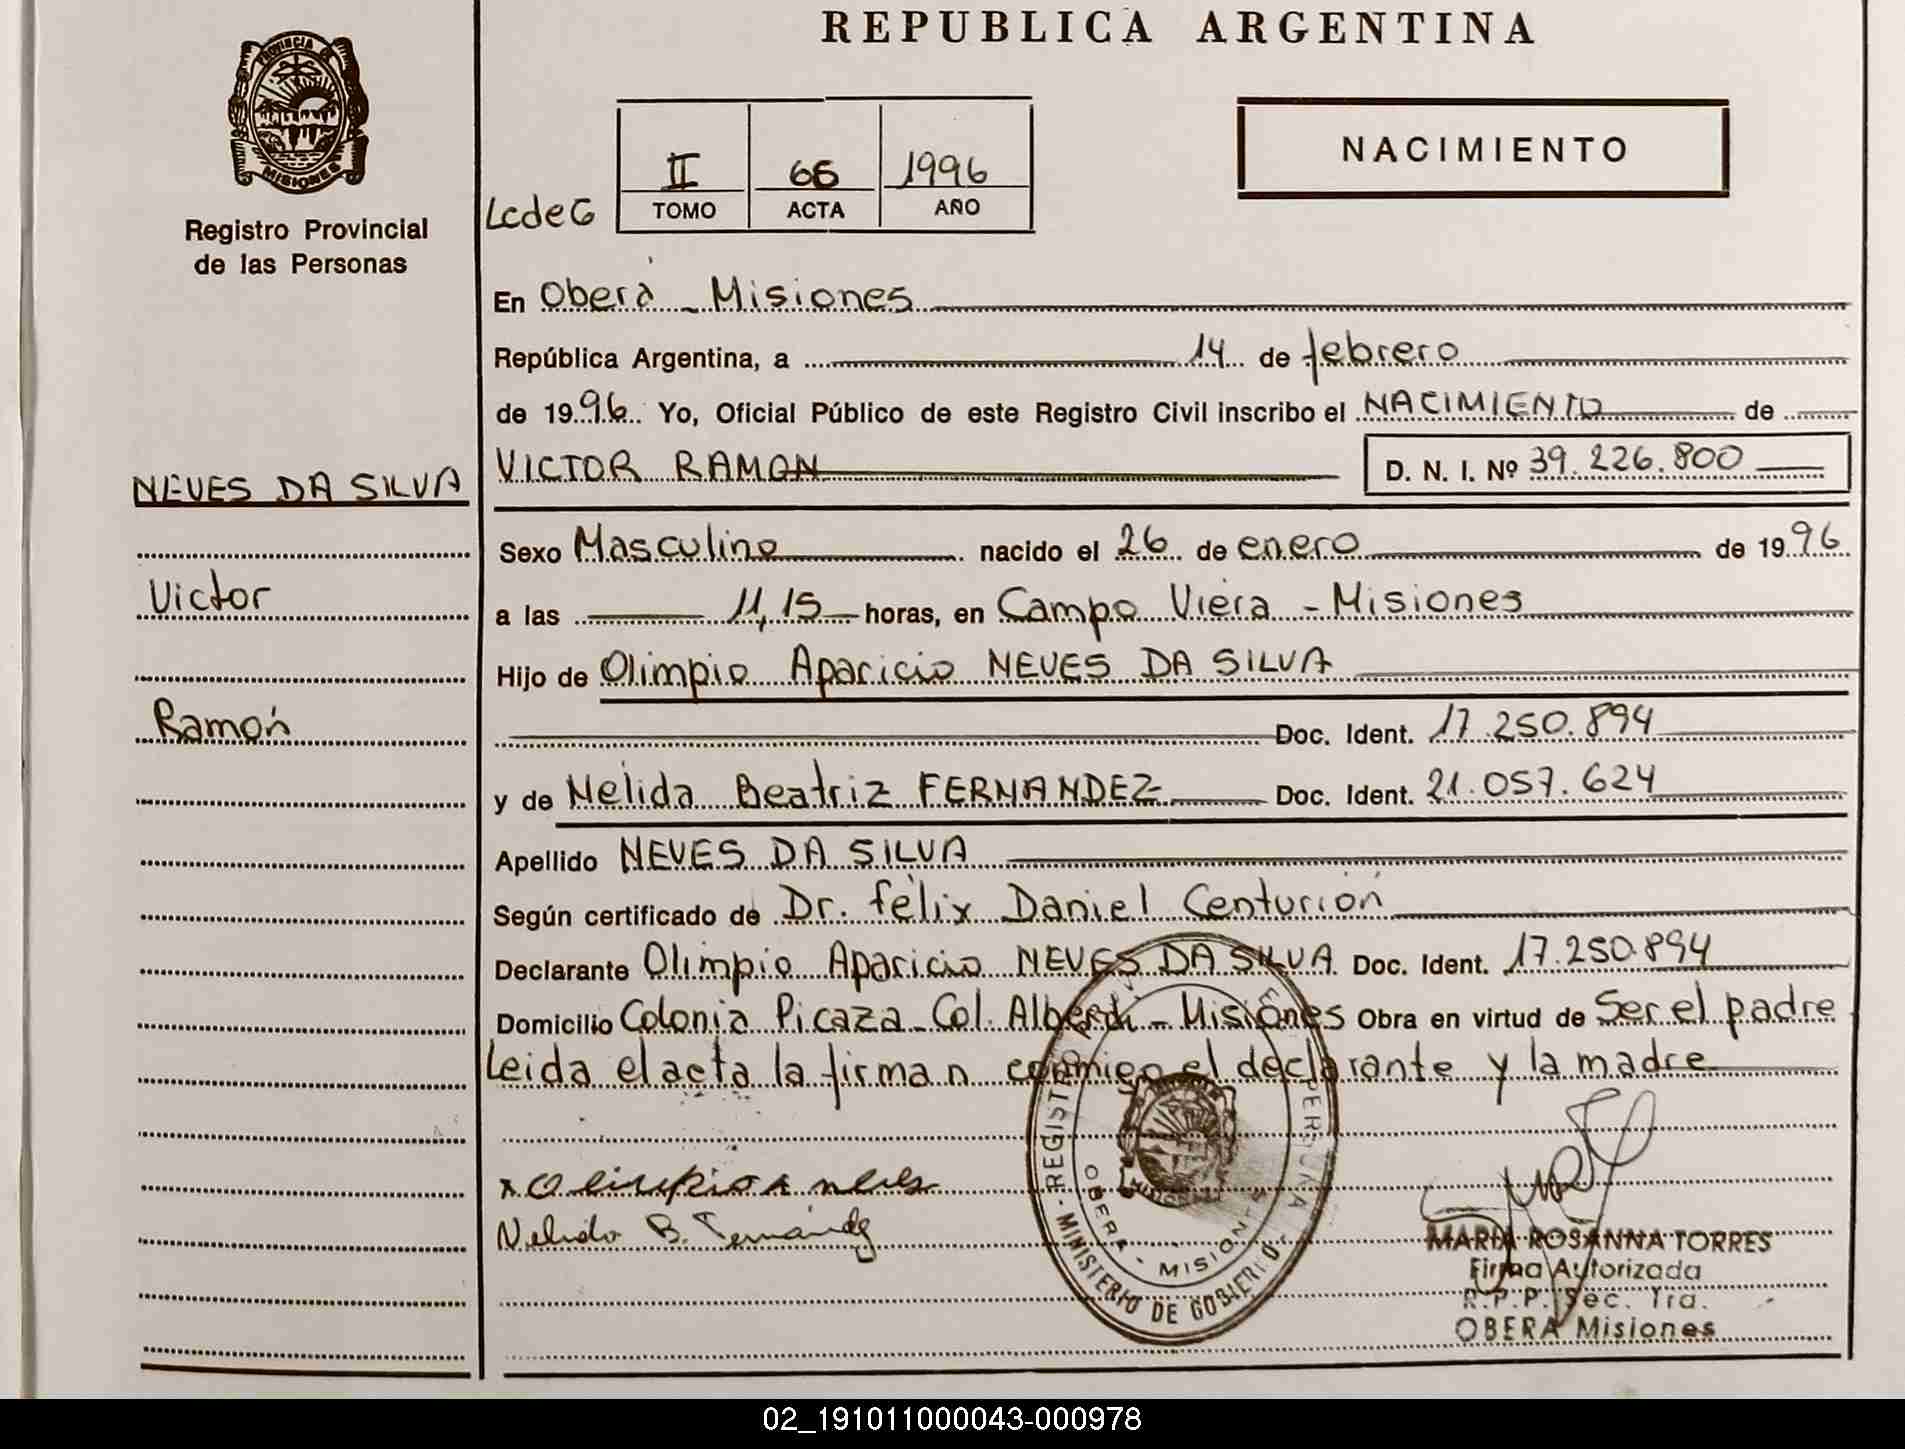 REPUBLICA ARGENTINA
PROVINCIA DE
MISIONES
Registro Provincial
de las Personas
NACIMIENTO
LcdeG
II 66 1996
TOMO ACTA AÑO
En Oberá - Misiones
República Argentina, a 14 de febrero
de 1996 Yo, Oficial Público de este Registro Civil inscribo el NACIMIENTO de
NEVES DA SILVA
VICTOR RAMON D. N. I. Nº 39.226.800
Sexo Masculino nacido el 26 de enero de 1996
Victor
a las 11,15 horas, en Campo Viera - Misiones
Hijo de Olimpio Aparicio NEVES DA SILVA
Ramón
Doc. Ident. 17.250.894
y de Nélida Beatriz FERNANDEZ Doc. Ident. 21.057.624
Apellido NEVES DA SILVA
Según certificado de Dr. félix Daniel Centurión
Declarante Olimpio Aparicio NEVES DA SILVA Doc. Ident. 17.250.894
Domicilio Colonia Picaza - Col. Alberdi - Misiones Obra en virtud de Ser el padre
Leida el acta la firman conmigo el declarante y la madre
x Olimpio A neves
Nelida B. Fernández
OBERA - MISIONES
MINISTERIO DE GOBIERNO
MARIA ROSANNA TORRES
Firma Autorizada
R.P.P. Sec. 1ra.
OBERA Misiones
02_191011000043-000978